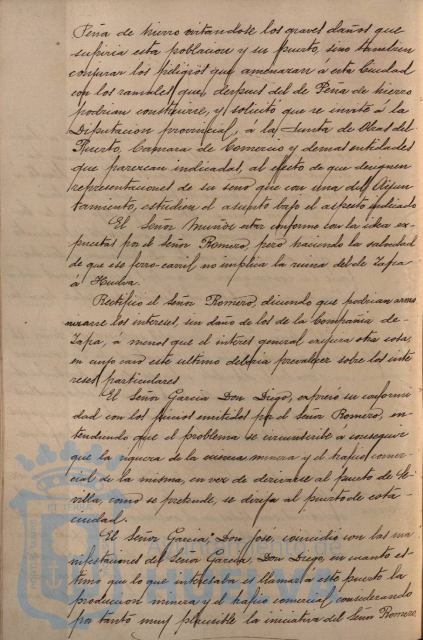 Peña de hierro evitandose los graves daños que
sufriria esta poblacion y su puerto, sino tambien
conjurar los peligros que amenazan á esta Ciudad
con los ramales que, despues del de Peña de hierro
podrian construirse, y solicitó que se invite á la
Diputacion provincial, á la Junta de Obras del
Puerto, Cámara de Comercio y demas entidades
que parezcan indicadas, al efecto de que designen
representaciones de su seno que con una del Ayun-
tamiento, estudien el asunto bajo el aspecto indicado
El Señor Muñoz estar conforme con la idea ex-
puesta por el Señor Romero, pero haciendo la salvedad
de que ese ferro-carril no implica la ruina del de Zafra
á Huelva.
Rectificó el Señor Romero, diciendo que podrian armo
nizarse los intereses, sin daño de los de la Compañia de
Zafra, á menos que el interés general exigiera otra cosa,
en cuyo caso este ultimo deberia prevalecer sobre los inte
reses particulares
El Señor Garcia Don Diego, expresó su conformi
dad con los juicios emitidos por el Señor Romero, en-
tendiendo que el problema se circunscribe á conseguir
que la riqueza de la cuenca minera y el trafico comer-
cial de la misma, en vez de derivarse al puerto de Se-
villa, como se pretende, se dirija al puerto de esta
ciudad.
El Señor Garcia, Don José, coincidio con las ma
nifestaciones del Señor Garcia, Don Diego, en cuanto es-
timo que lo que interesaba es llamar á este puerto la
produccion minera y el trafico comercial, considerando
por tanto muy plausible la iniciativa del Señor Romero